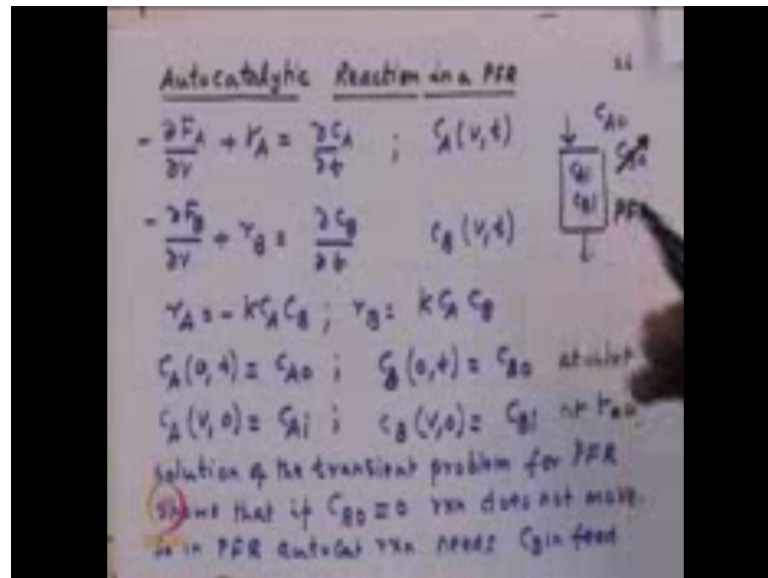 Autocatalytic Reaction in a PFR
- ∂F_A/∂V + r_A = ∂C_A/∂t ; C_A(V,t)
C_A0
C_B0
C_Ai
C_Bi
PFR
- ∂F_B/∂V + r_B = ∂C_B/∂t C_B(V,t)
r_A = - k C_A C_B ; r_B = k C_A C_B
C_A(0,t) = C_A0 ; C_B(0,t) = C_B0 at inlet
C_A(V,0) = C_Ai ; C_B(V,0) = C_Bi at t=0
solution of the transient problem for PFR
shows that if C_B0 = 0 rxn does not move.
so in PFR autocat rxn needs C_B in feed